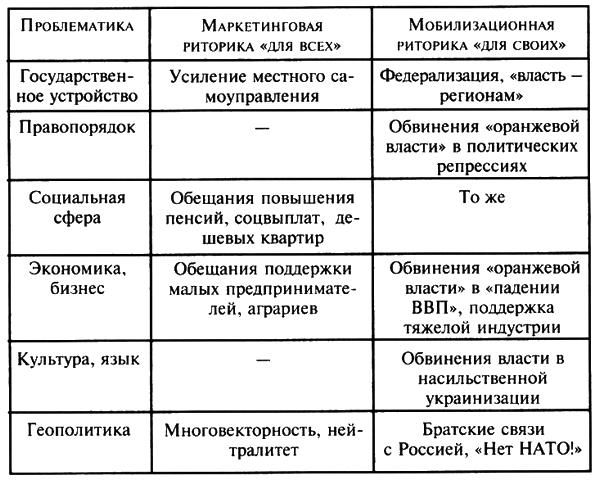 Проблематика
Маркетинговая
риторика «для всех»
Мобилизационная
риторика «для своих»
Государствен-
ное устройство
Усиление местного са-
моуправления
Федерализация, «власть –
регионам»
Правопорядок
—
Обвинения «оранжевой
власти» в политических
репрессиях
Социальная
сфера
Обещания повышения
пенсий, соцвыплат, де-
шевых квартир
То же
Экономика,
бизнес
Обещания поддержки
малых предпринимате-
лей, аграриев
Обвинения «оранжевой
власти» в «падении
ВВП», поддержка
тяжелой индустрии
Культура, язык
—
Обвинения власти в
насильственной
украинизации
Геополитика
Многовекторность, ней-
тралитет
Братские связи
с Россией, «Нет НАТО!»